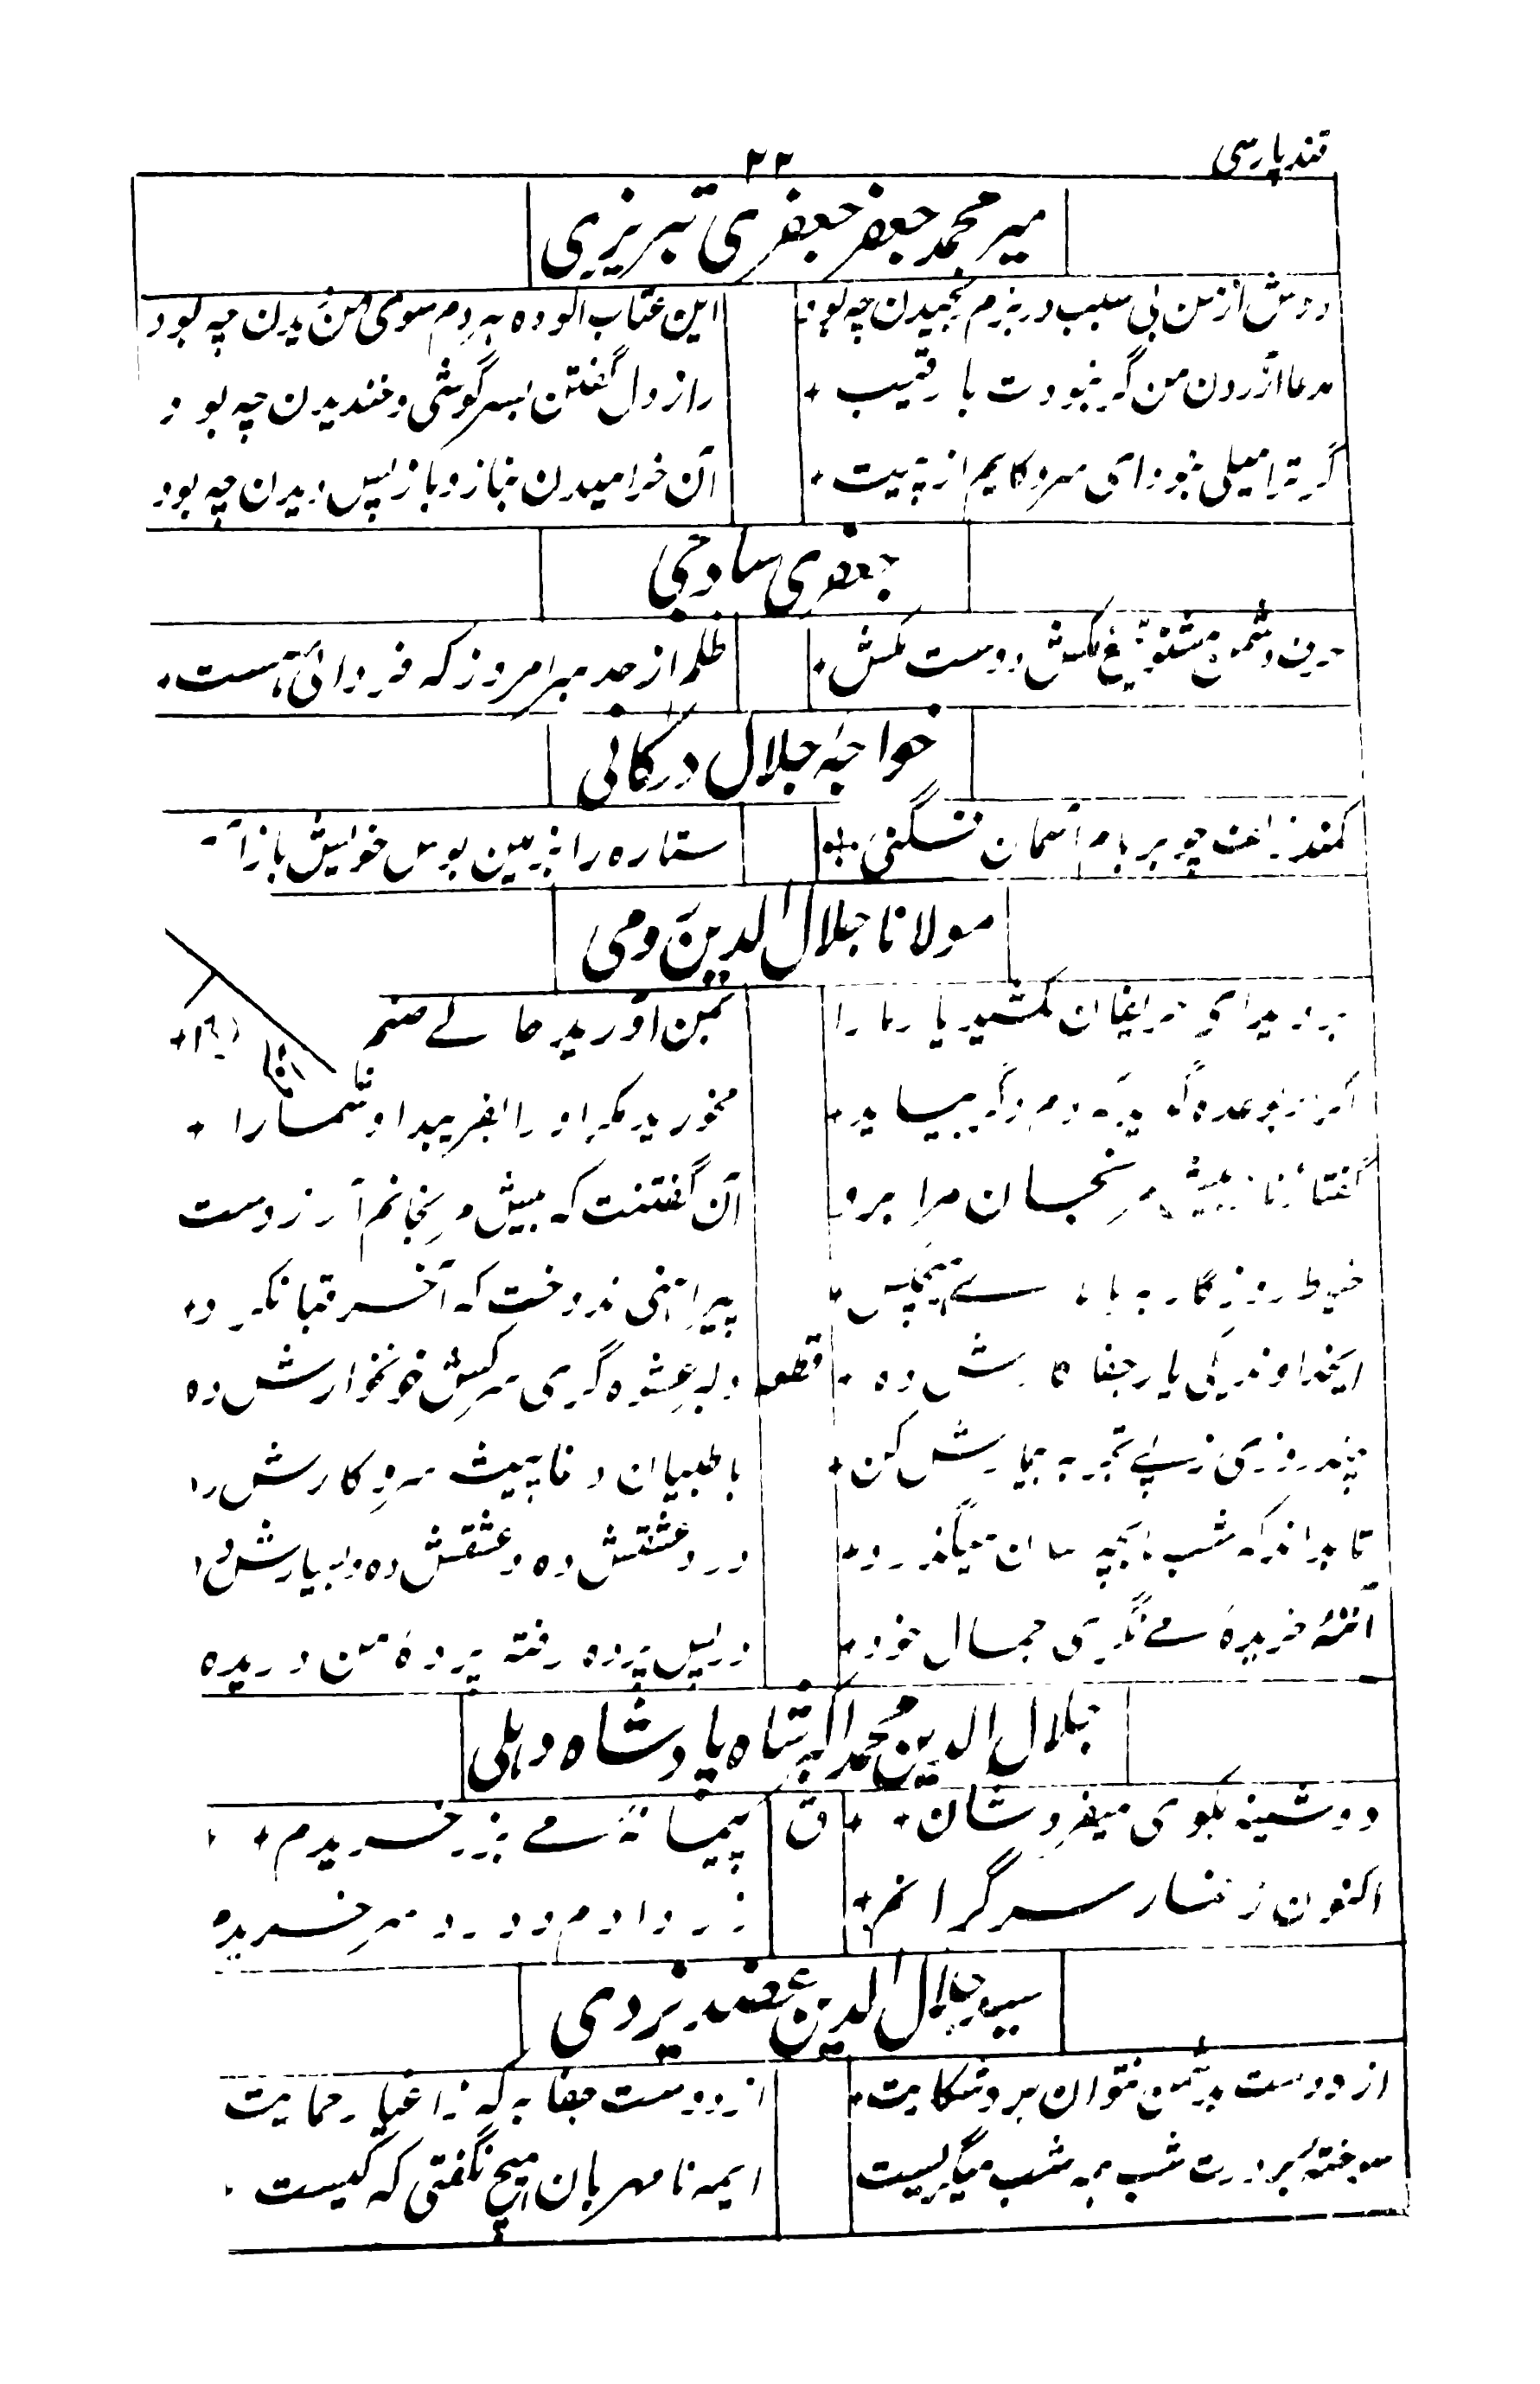 قند پارسی
۲۲
میر محمد جعفر جعفری تبریزی
دوش از من بی سبب در بزم رنجیدن چه بود
این عتاب آلوده هر دم سوی من دیدن چه بود
مدعا آزردن من گر نبودت با رقیب
راز دل گفتن بسرگوشی و خندیدن چه بود
گر ترا میلی نبود ای سرو کایم از پیت
آن خرامیدن بناز و باز پس دیدن چه بود
جعفری ساوجی
حرف دشمن مشنو تیغ مکش دوست مکش
ظلم از حد مبر امروز که فردائی هست
خواجه جلال درکانی
کمند زلفت چو بر بام آسمان فگنی
ستاره را بزمین بوس خویش باز آ
مولانا جلال الدین رومی
بروید ای حریفان بکشید یار ما را
بمن آورید حالے صنم
اگر او بوعده گوید که دم دگر بیاید
مخورید مکر او را بفریبد او شما را
گفتا ز ناز بیش مرنجان مرا برو
آن گفتنت که بیش مرنجانم آرزوست
خیاط روزگار به بالاے هیچکس
پیراهنی ندوخت که آخر قبا نکرد
ایخداوند یکی یار جفا کارش ده
قطعه
دلبر عشوه گری سرکش خونخوارش ده
چند روزی ز پئے تجربه بیمارش کن
با طبیبان دغا پیشه سر و کارش ده
تا بداند که شب ما بچه سان میگذرد
درد عشقش ده و عشقش ده و بسیارش ده
آئنهٔ خریدهٔ مے نگری جمال خود
در پس پرده رفتهٔ پردهٔ من دریده
جلال الدین محمد اکبر شاه پادشاه دهلی
دوشینه بکوی میفروشان
ق
پیمانهٔ مے بزر خریدم
اکنون ز خمار سرگرانم
زر دادم و درد سر خریدم
سید جلال الدین عضد یزدی
از دوست بدشمن نتوان برد شکایت
از دوست جفا به که ز اغیار حمایت
سوختهٔ بر درت شب همه شب میگریست
ایمه نامهربان هیچ نگفتی که کیست